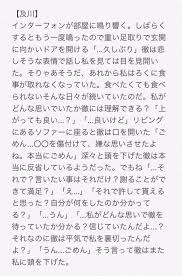 【及川】
インターフォンが部屋に鳴り響く。しばらく
するともう一度鳴ったので重い足取りで玄関
に向かいドアを開ける「…久しぶり」徹は悲
しそうな表情で話し私を見ては目を見開い
た。そりゃあそうだ、あれから私はろくに食
事が取れなくなっていた。食べたくても食べ
られないそんな日々が続いていたのだ。私が
どんな思いでいたか徹には理解できる？「上
がっても良い…？」「…良いけど」リビング
にあるソファーに座ると徹は口を開いた「ご
めん…〇〇を傷付けて、嫌な思いさせたよ
ね。本当にごめん」深々と頭を下げた徹は本
当に反省しているようだった。でもね「…そ
れで？言いたい事はそれだけ？謝ることがで
きて満足？」「え…」「それで許して貰える
と思った？自分が何をしたのか分かって
る？」「…うん」「…私がどんな思いで徹を
待っていたか分かる？信じていたんだよ…？
それなのに徹は平気で私を裏切ったんだ
よ？」「うん…ごめん」そう言って徹はまた
私に頭を下げた。